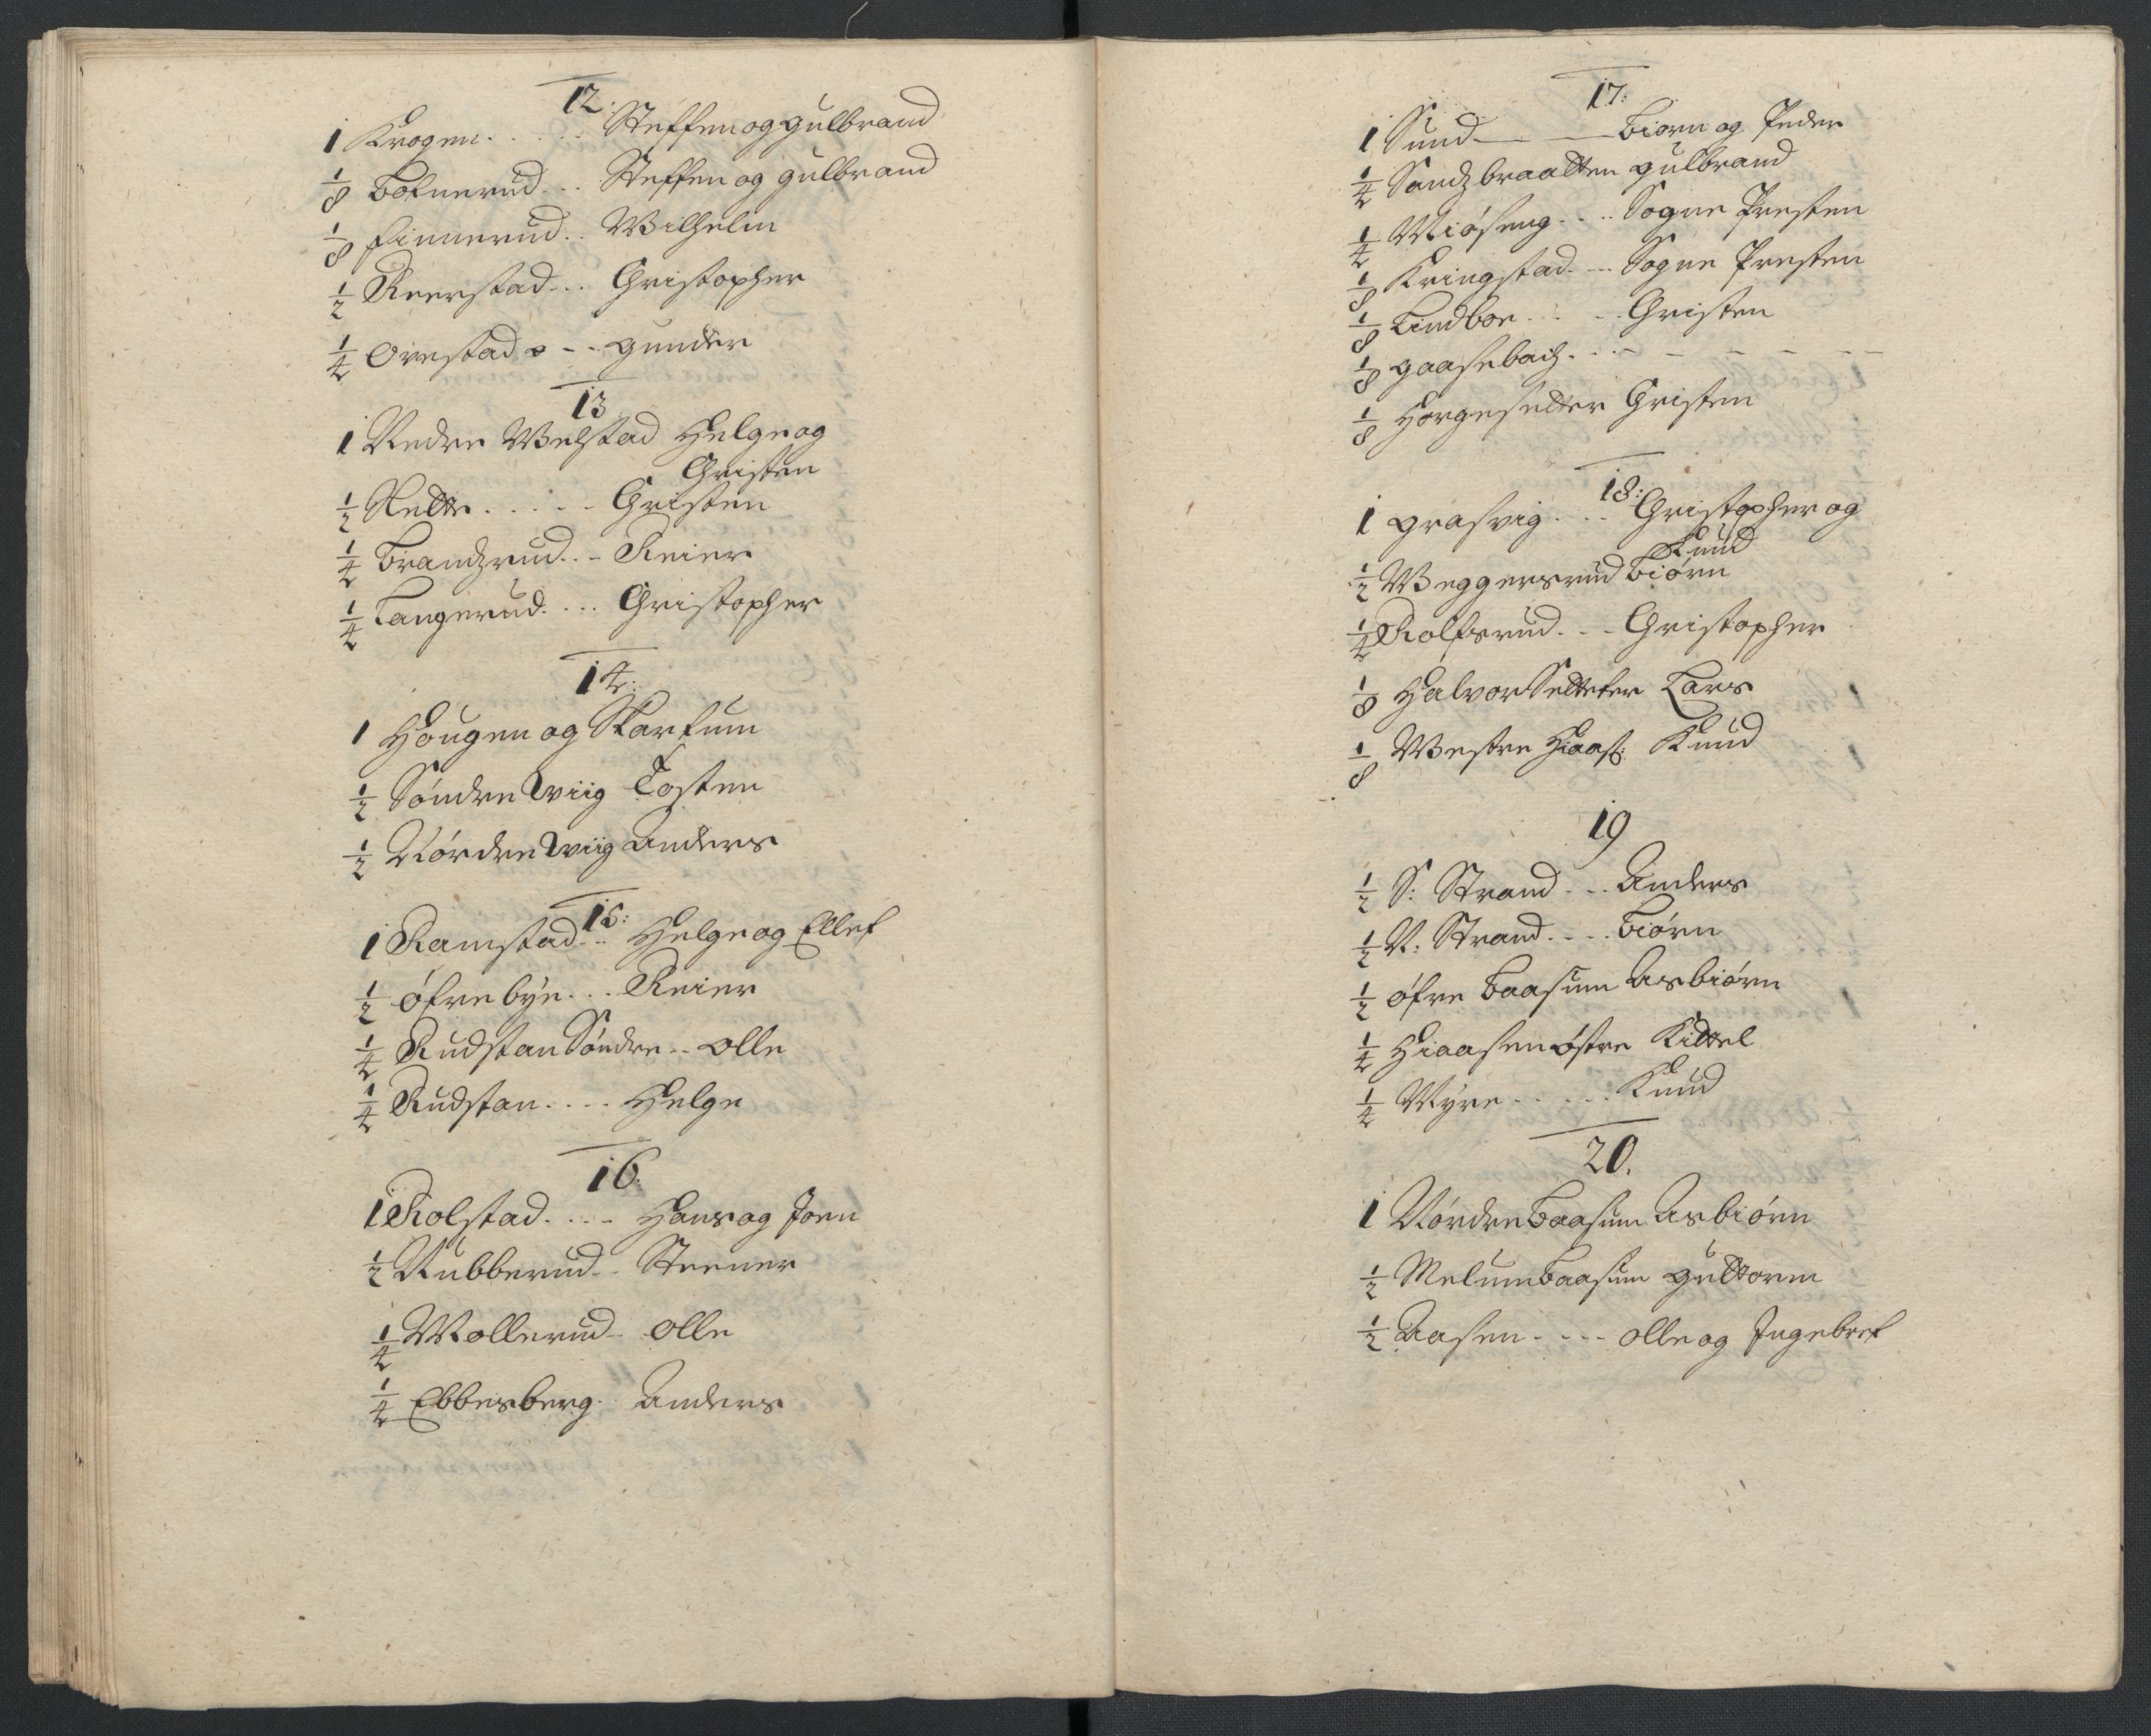 12.
1 Krogen . . . . . Steffen og Gulbrand
1/8 Bofnerud . . . Steffen og Gulbrand
1/8 Finnerud . . Wilhelm
1/2 Reerstad . . . Christopher
1/4 Ovestad - - . Gunder
13
1 Nedre Welstad Helge og
Christen
1/2 Slette . . . . . Christen
1/4 Brandzrud . . - Reier
1/4 Tangerud . . . . Christopher
14.
1 Hougen og Skartum
1/2 Søndre Wiig Tosten
1/2 Nørdre Wiig Anders
15:
1 Ramstad . . Helge og Ellef
1/2 øfrebye . . . Reier
1/4 Rudstan Søndre . . Olle
1/4 Rudstan . . . . Helge
16.
1 Rolstad . . . . Hans og Joen
1/2 Nubberud . . Steener
1/4 Mollerud . . Olle
1/4 Ebbesberg . Anders
17.
1 Sund — — Biørn og Peder
1/4 Sandzbraatten Gulbrand
1/4 Miøseng . . . . Sogne Presten
1/8 Kringstad . . . . Sogne Presten
1/8 Lindboe . . . . Christen
1/8 Gaasebach . . . - - - - - -
1/8 Horgesetter Christen
18:
1 Grasvig . . . Christopher og
Knud
1/2 Weggersrud Biørn
1/4 Rolfsrud . . . Christopher
1/8 Halvor Setteter Lars
1/8 Westre Hiaas: Knud
19
1/2 S: Strand . . . Anders
1/2 N: Strand . . . . Biørn
1/2 øfre Baasum Asbiørn
1/4 Hiaasen østre Kittel
1/4 Myre . . . . . . Knud
20.
1 Nørdre Baasum Asbiørn
1/2 Melum Baasum Guttorm
1/2 Aasen . . . . Olle og Ingebret